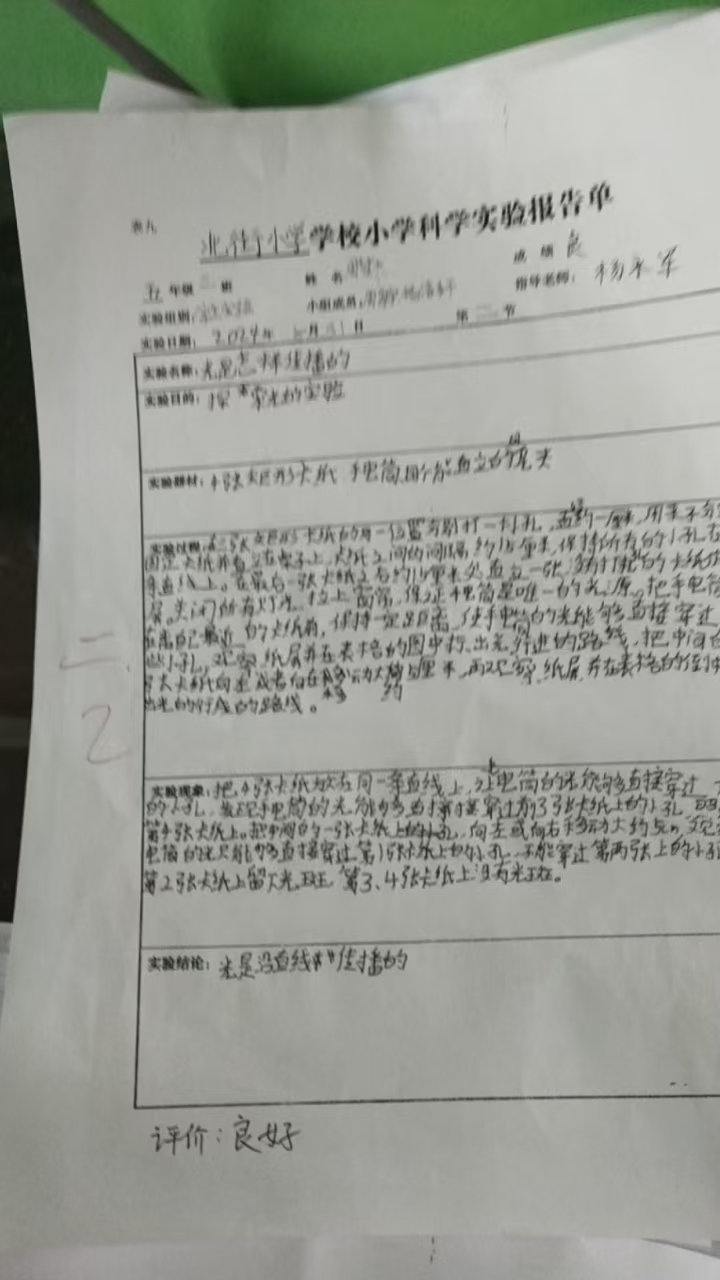 表九
北街小学学校小学科学实验报告单
五年级二班 姓名 成绩 良
实验组别: 小组成员: 指导老师: 杨永军
实验日期: 2024年 月 日 第二节
实验名称: 光是怎样传播的
实验目的: 探索光的实验
实验器材: 4张矩形卡纸 手电筒 四个能直立的 夹
实验过程: 在三张矩形卡纸的同一位置分别打一个小孔,孔约一厘米,用夹子分
固定卡纸并直立在架子上,卡纸之间的间隔约15厘米,保持所有的小孔在
条直线上。在最后一张卡纸之右约15厘米处直立一张没有打孔的卡纸作
屏。关闭所有灯光,拉上窗帘,保证手电筒是唯一的光源。把手电筒
在离自己最近的卡纸前,保持一定距离,使手电筒的光能够直接穿过
些小孔,观察纸屏并在表格的图中标出光行进的路线,把中间的
张卡纸向左或者向右移动大约5厘米,再观察纸屏并在表格的
出光的行进的路线。
实验现象: 把4张卡纸放在同一条直线上,让电筒的光能够直接穿过
的小孔,发现手电筒的光能够直接穿过前3张卡纸上的小孔
第4张卡纸上。把中间的一张卡纸上的小孔,向左或向右移动大约5
电筒的光只能够直接穿过第1张卡纸上的小孔,不能穿过第两张上的小孔
第2张卡纸上留下光斑,第3、4张卡纸上没有光斑。
实验结论: 光是沿直线传播的
二.
2
评价:良好